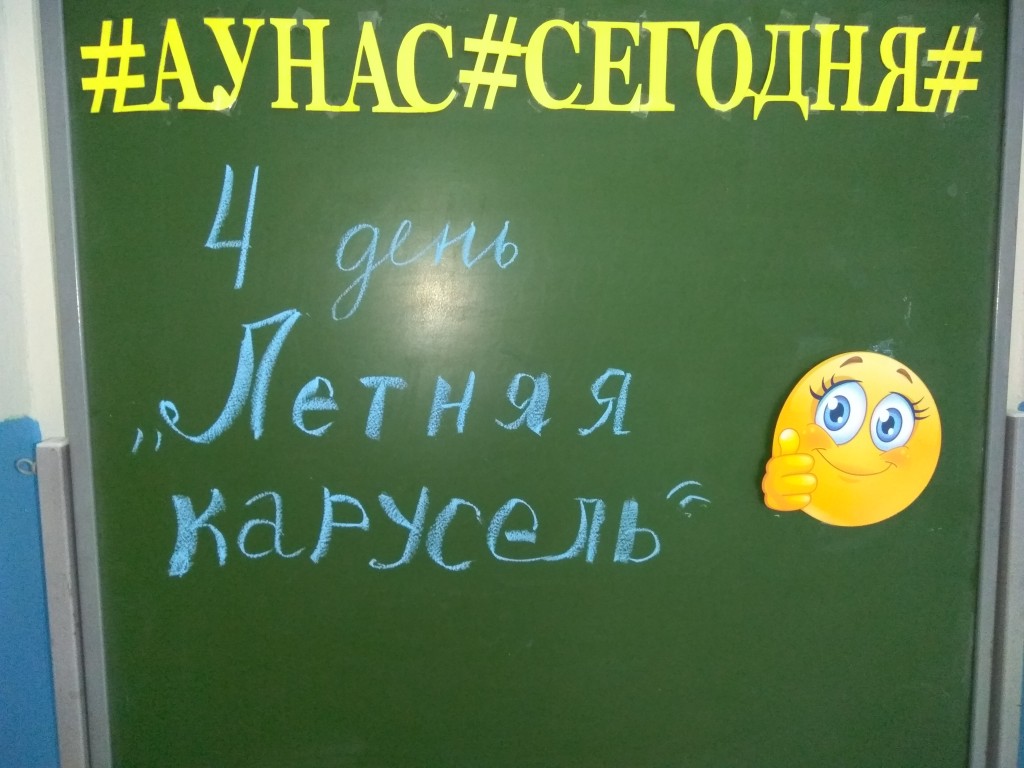 #АУНАС#СЕГОДНЯ#
4 день
„Летняя
карусель“